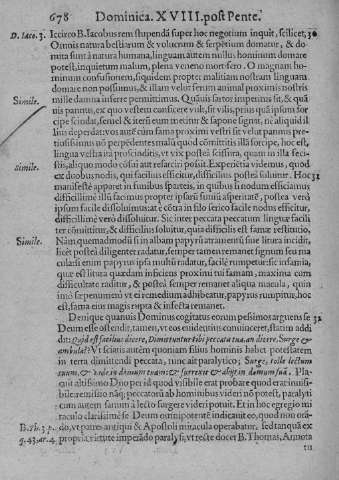 678 Dominica. XVIII. post Pente.
D. Iaco. 3. Iccirco B. Iacobus rem stupendã super hoc negotium inquit, scilicet, 30
Omnis natura bestiarum & volucrum & serpẽtium domatur, & do-
mita sunt à natura humana, linguam autem nullus hominum domare
potest, inquietum malum, plena veneno mortifero. O magnam ho-
minum confusionem, siquidem propter malitiam nostram linguam
domare non possumus, & illam velut ferum animal proximis nostris
Simile. mille damna inferre permittimus. Quãuis sartor imperitus sit, & quã
uis pannus, ex quo vestem
cipe scindat, semel & iterũ eum metitur & sapone signat, nè aliquid il
lius deperdat: vos autẽ cum fama proximi vestri sit velut pannus pre-
tiosissimus nõ perpẽdentes malũ quod cõmittitis illã forcipe, hoc est,
lingua vestra vtà proscinditis, vt vix postea
simile. stis, aliquo modo cõsui aut resarciri possit. Experiẽtia videmus, quod
ex duobus nodis, qui facilius efficitur, difficilius postea soluitur. Hoc 31
manifestè apparet in funibus sparteis, in quibus li nodum efficiamus
difficillimè illũ facimus propter ipsarũ funiũ asperitatẽ, postea verò
ipsum facilè dissoluimus: at è cõtra in filo serico facilè nodus efficitur,
difficillimè verò dissoluitur. Sic inter peccata peccatum linguæ facili
ter cõmittitur, & difficilius soluitur, quia difficilis est famæ restitutio.
Simile. Nam quemadmodũ si in album papyrũ atramentũ siue litura incidit,
licèt postea diligenter radatur, semper tamen remanet signum seu ma
cula: si enim papyrus ipsa multũ radatur, facilè rumpetur: sic infamia,
quæ est litura quædam inficiens proximi tui famam, maxima cum
difficultate raditur, & postea semper remanet aliqua macula, quin
imò sæpenumerò vt ei remedium adhibeatur, papyrus rumpitur, hoc
est, fama eius magis rupta & infesta remanet.
Denique quanuis Dominus cogitatus eorum pessimos arguens se 32
Deum esse ostendit, tamen, vt eos euidentius conuinceret, statim addi
dit: Quid est facilius dicere, Dimittuntur tibi peccata tua, an dicere. Surge &
ambula? Vt sciatis autem quoniam filius hominis habet potestatem
in terra dimittendi peccata, tunc ait paralytico; Surge, tolle lectum
tuum, & vade in domum tuam: & surrexit & abijt in domum suã. Pla-
quit altissimo Dño per id quod visibile erat probare quod erat inuisi-
bile: remissio nãq; peccatorũ ab hominibus videri nõ potest, paralyti
cum autem sanum à lecto surgere videri potuit. Et in hoc egregio mi
raculo clarissimè se Deum omnipotentẽ indicauit: eo, quod non orã-
B. Th. 3. p. do, vt patres antiqui & Apostoli miracula operabatur, sed tanquã ex
q. 43. ar. 4. propria virtute imperãdo paralysi, vt rectè docet B. Thomas, Annota